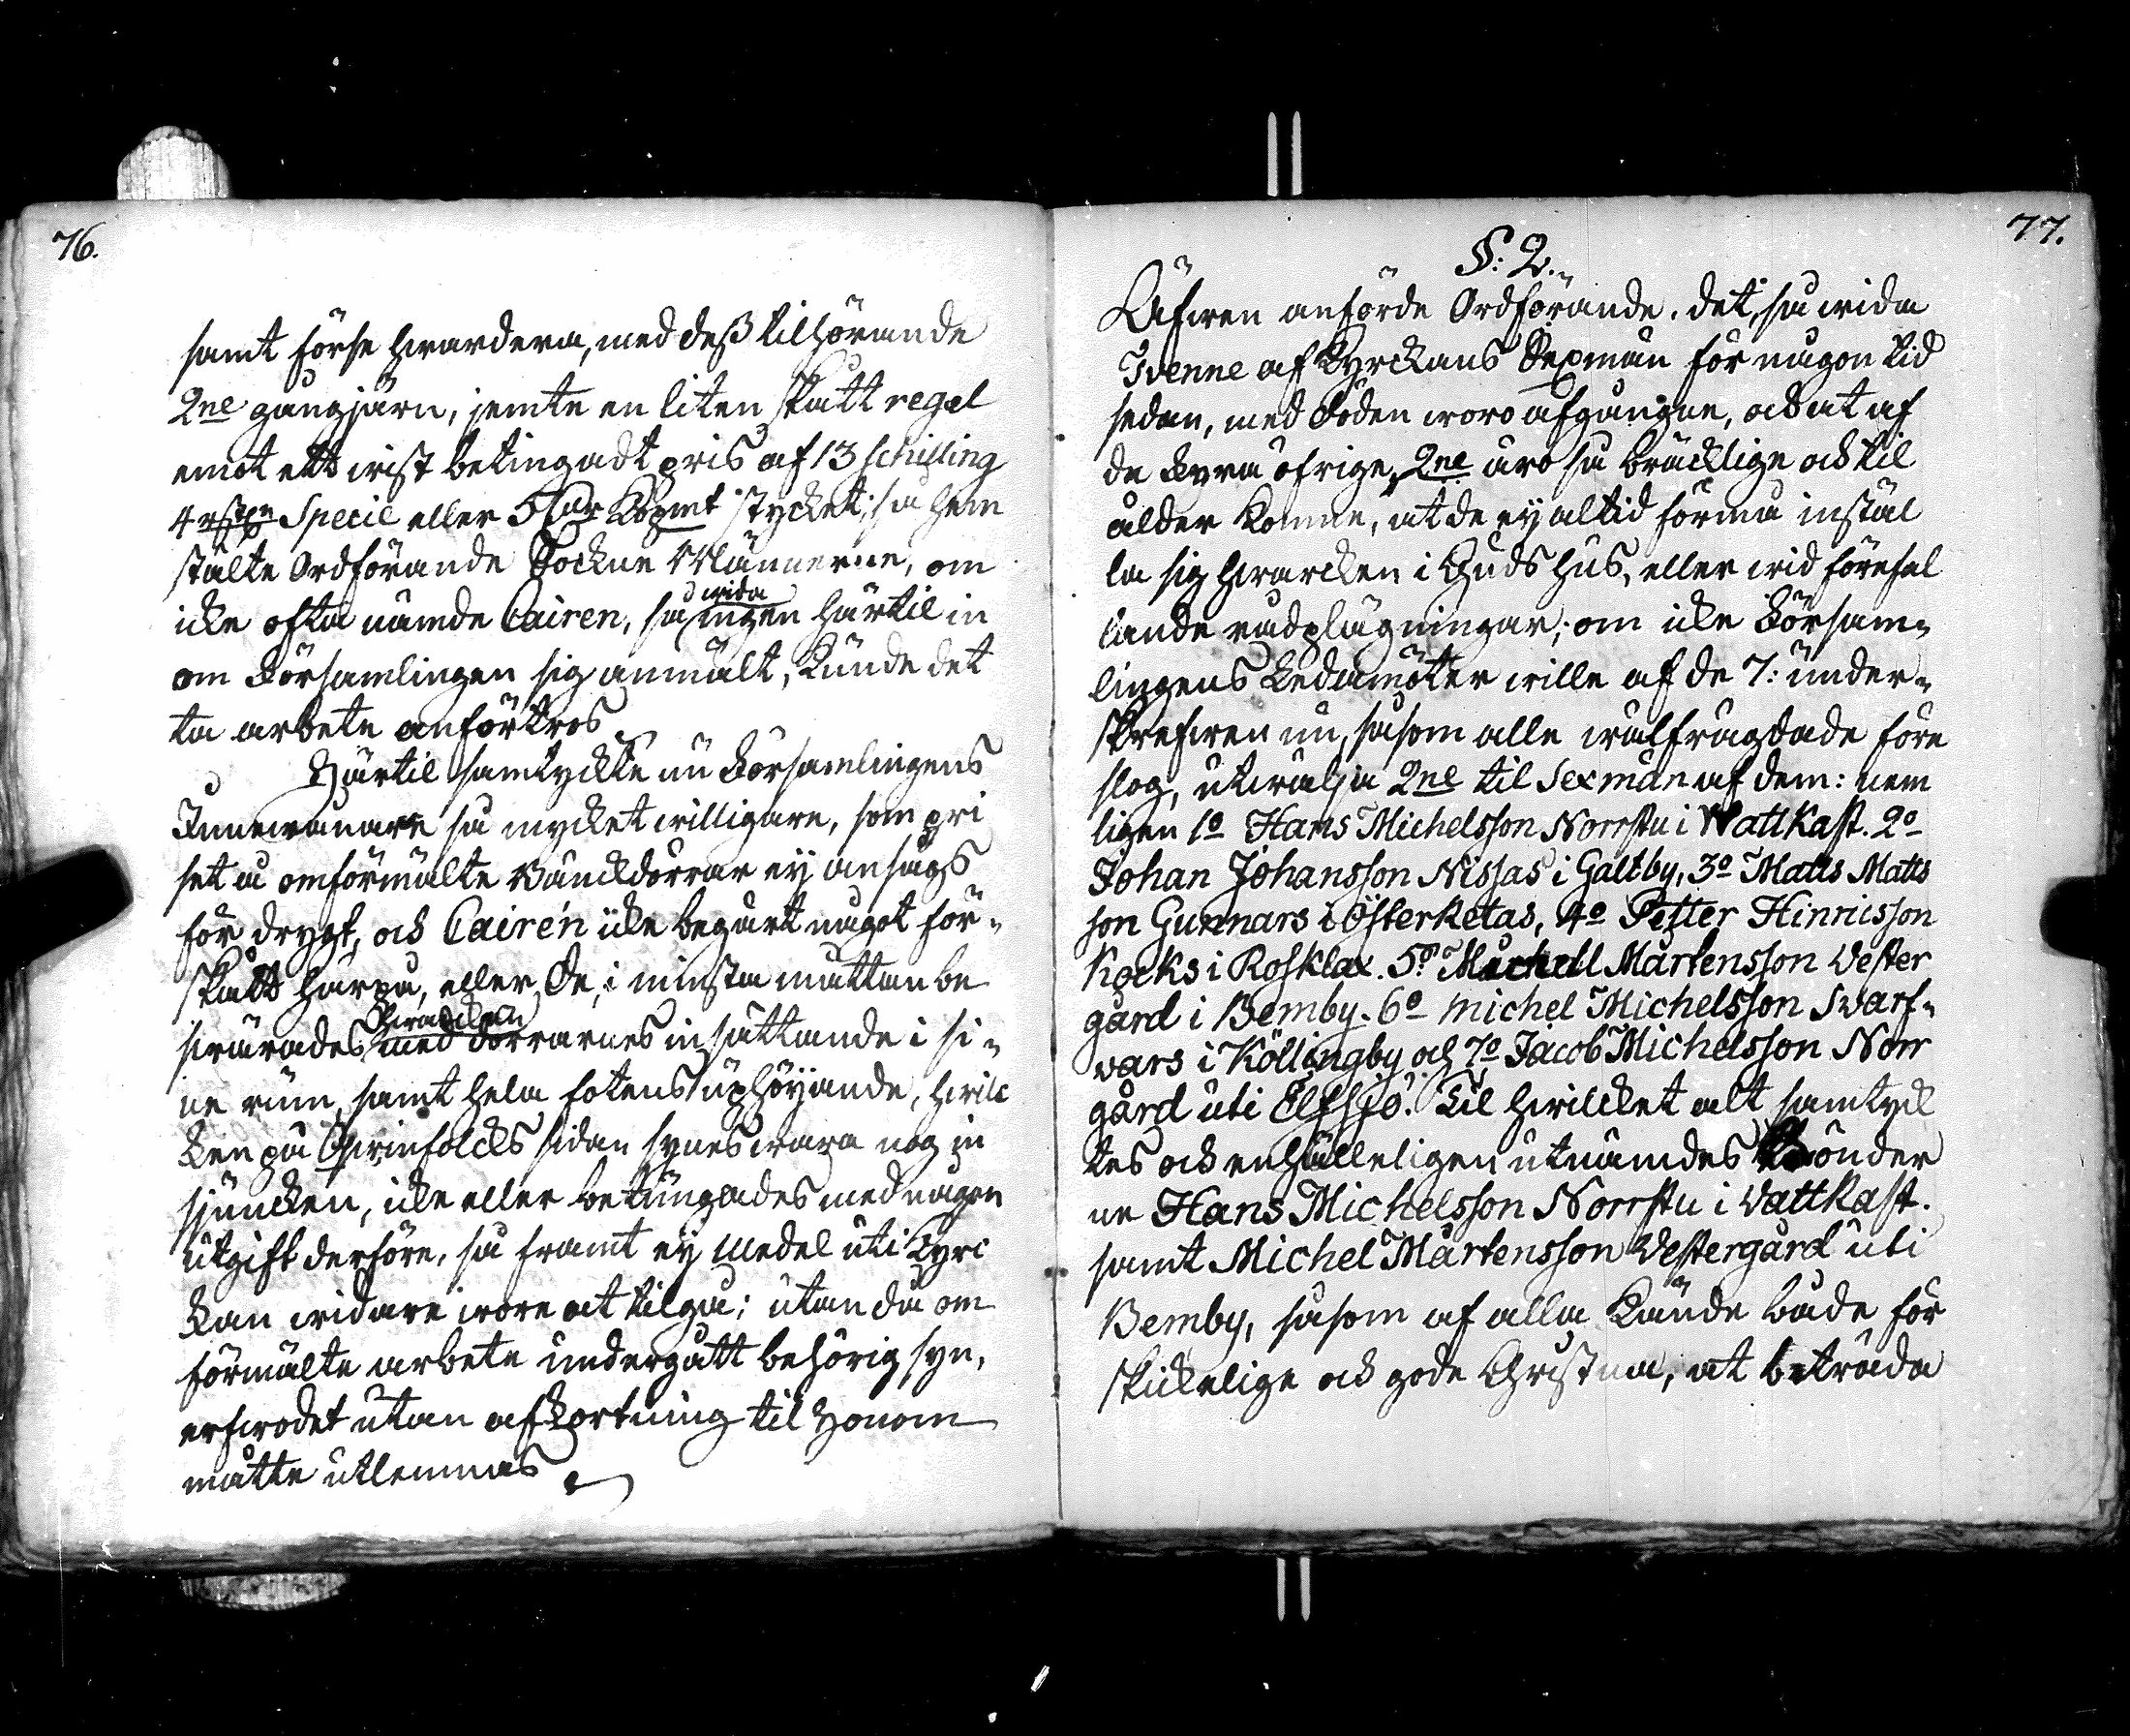 76.
samt förse hwardera, med dess tilhörande
2ne gångjärn, jemte en liten skått regel
emot ett wist betingadt pris af 13 schilling
4 rst:n Specie eller 5 dlr Kopmt stycket; så hem
stälte Ordförande Sockne Männerne, om
icke ofta nämde Cairen, så wida ingen härtil in
om Församlingen sig anmält, kunde det
ta arbete anförtros
Härtil samtyckte nu Församlingens
Innewånare så mycket willigare, som pri
set å omförmälte Bänckdörrar ej ansågs
för drygt, och Cairén icke begärt något för-
skått härpå, eller De, i minsta måttan be
swärades hwarcken med dörrarnes insättande i si-
ne rum, samt hela fotens uphöjande, hwilc
ken på Qwinfolcks sidan synes wara nog in
sjuncken, icke eller betungades med någon
utgift derföre, så framt ej medel uti Kyrc
kan widare wore at tilgå; utan då om
förmälte arbete undergått behörig syn,
arfwodet utan afkortning til Honom
måtte utlemnas
77.
§: 2.
Äfwen anförde Ordförande, det, så wida
Tvenne af Kyrckans Sexmän för någon tid
sedan, med Döden woro afgångne, och at af
de fyra öfrige, 2ne äro så bräcklige och til
ålder komne, at de ej altid förmå instäl
la sig hwarcken i Guds Hus, eller wid förefal
lande rådplägningar; om icke Försam-
lingens Ledamöter wille af de 7: under-
skrefwen nu, såsom alle wälfrägdade före
slog, utwälja 2ne til Sexmän af dem: nem
ligen 1o Hans Michelsson Norrstu i Wattkast. 2o
Johan Johansson Nissas i Galtby, 3o Matts Matts
son Gunnars i Österketas, 4o Petter Hinricsson
Kocks i Rosklax. 5o Michell Mårtensson Wester
gård i Bemby. 6o Michel Michelsson Swarf-
vars i Köllingby och 7o Jacob Michelsson Norr
gård uti Elfsjö. Til hwilcket alt samtyck
tes och enhälleligen utnämdes Bönder
ne Hans Michelsson Norrstu i Wattkast.
samt Michel Mårtensson Westergård uti
Bemby, såsom af alla kände både för
skickelige och gode Christna, at beträda